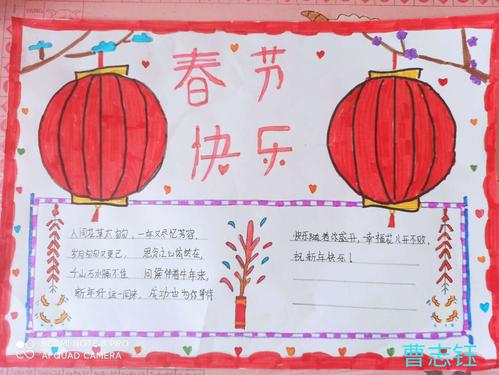 春节
快乐
人间花落太匆匆，一年又尽忆芳容，
岁月匆匆又 思念让心依然在，
千山 水隔不住 问候伴着牛年来，
新年好运一同来，成功也为你等待
快乐随着你盛开，幸福花儿开不败，
祝新年快乐！
REDMI NOTE 8 PRO
AI QUAD CAMERA
曹志钰